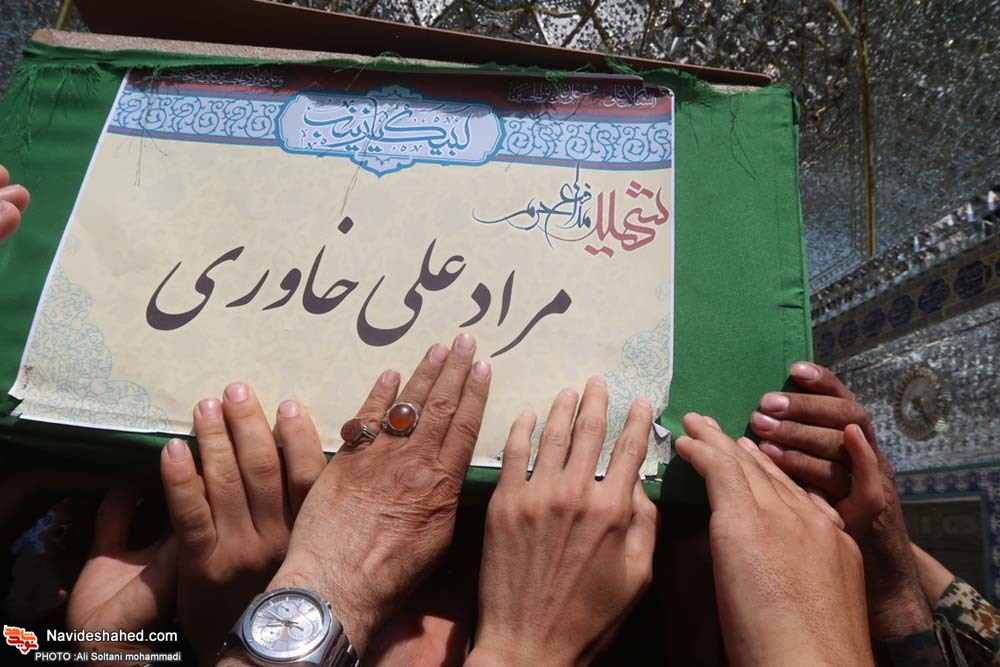 لبیک یا زینب
شهید مدافع حرم
مراد علی خاوری
Navideshahed.com
PHOTO :Ali Soltani mohammadi